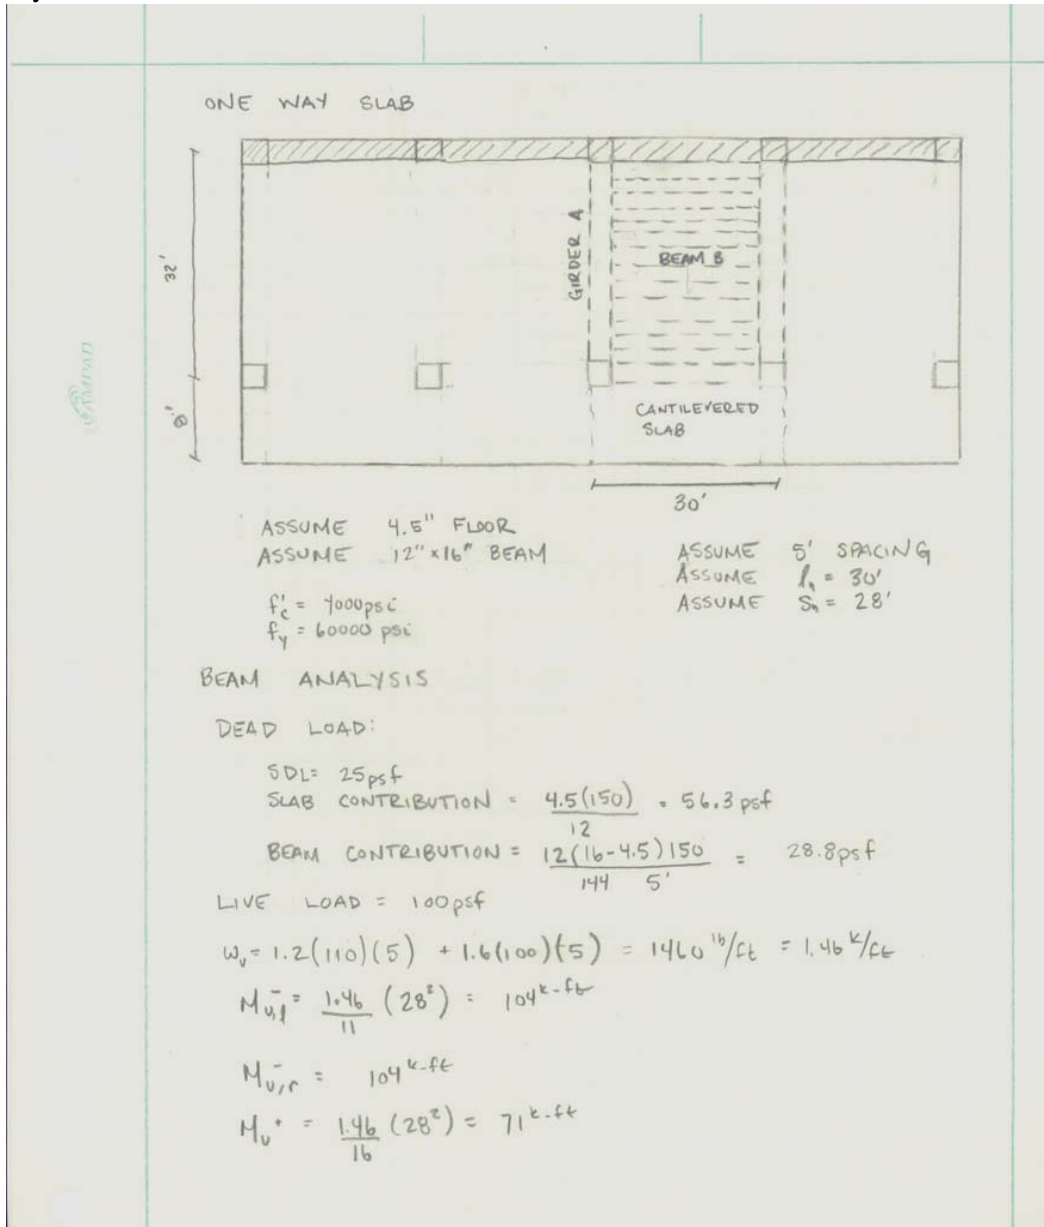 ONE WAY SLAB
32'
8'
GIRDER A
BEAM B
CANTILEVERED
SLAB
30'
ASSUME 4.5" FLOOR
ASSUME 12"x16" BEAM
ASSUME 5' SPACING
ASSUME lₙ = 30'
ASSUME Sₙ = 28'
f'c = 4000psi
fy = 60000 psi
BEAM ANALYSIS
DEAD LOAD:
SDL= 25psf
SLAB CONTRIBUTION = 4.5(150)/12 = 56.3 psf
BEAM CONTRIBUTION = 12(16-4.5)150/144 5' = 28.8psf
LIVE LOAD = 100psf
wᵤ = 1.2(110)(5) + 1.6(100)(5) = 1460 lb/ft = 1.46 k/ft
Mᵤ,l⁻ = 1.46/11 (28²) = 104 k-ft
Mᵤ,r⁻ = 104 k-ft
Mᵤ⁺ = 1.46/16 (28²) = 71 k-ft
AMPAD